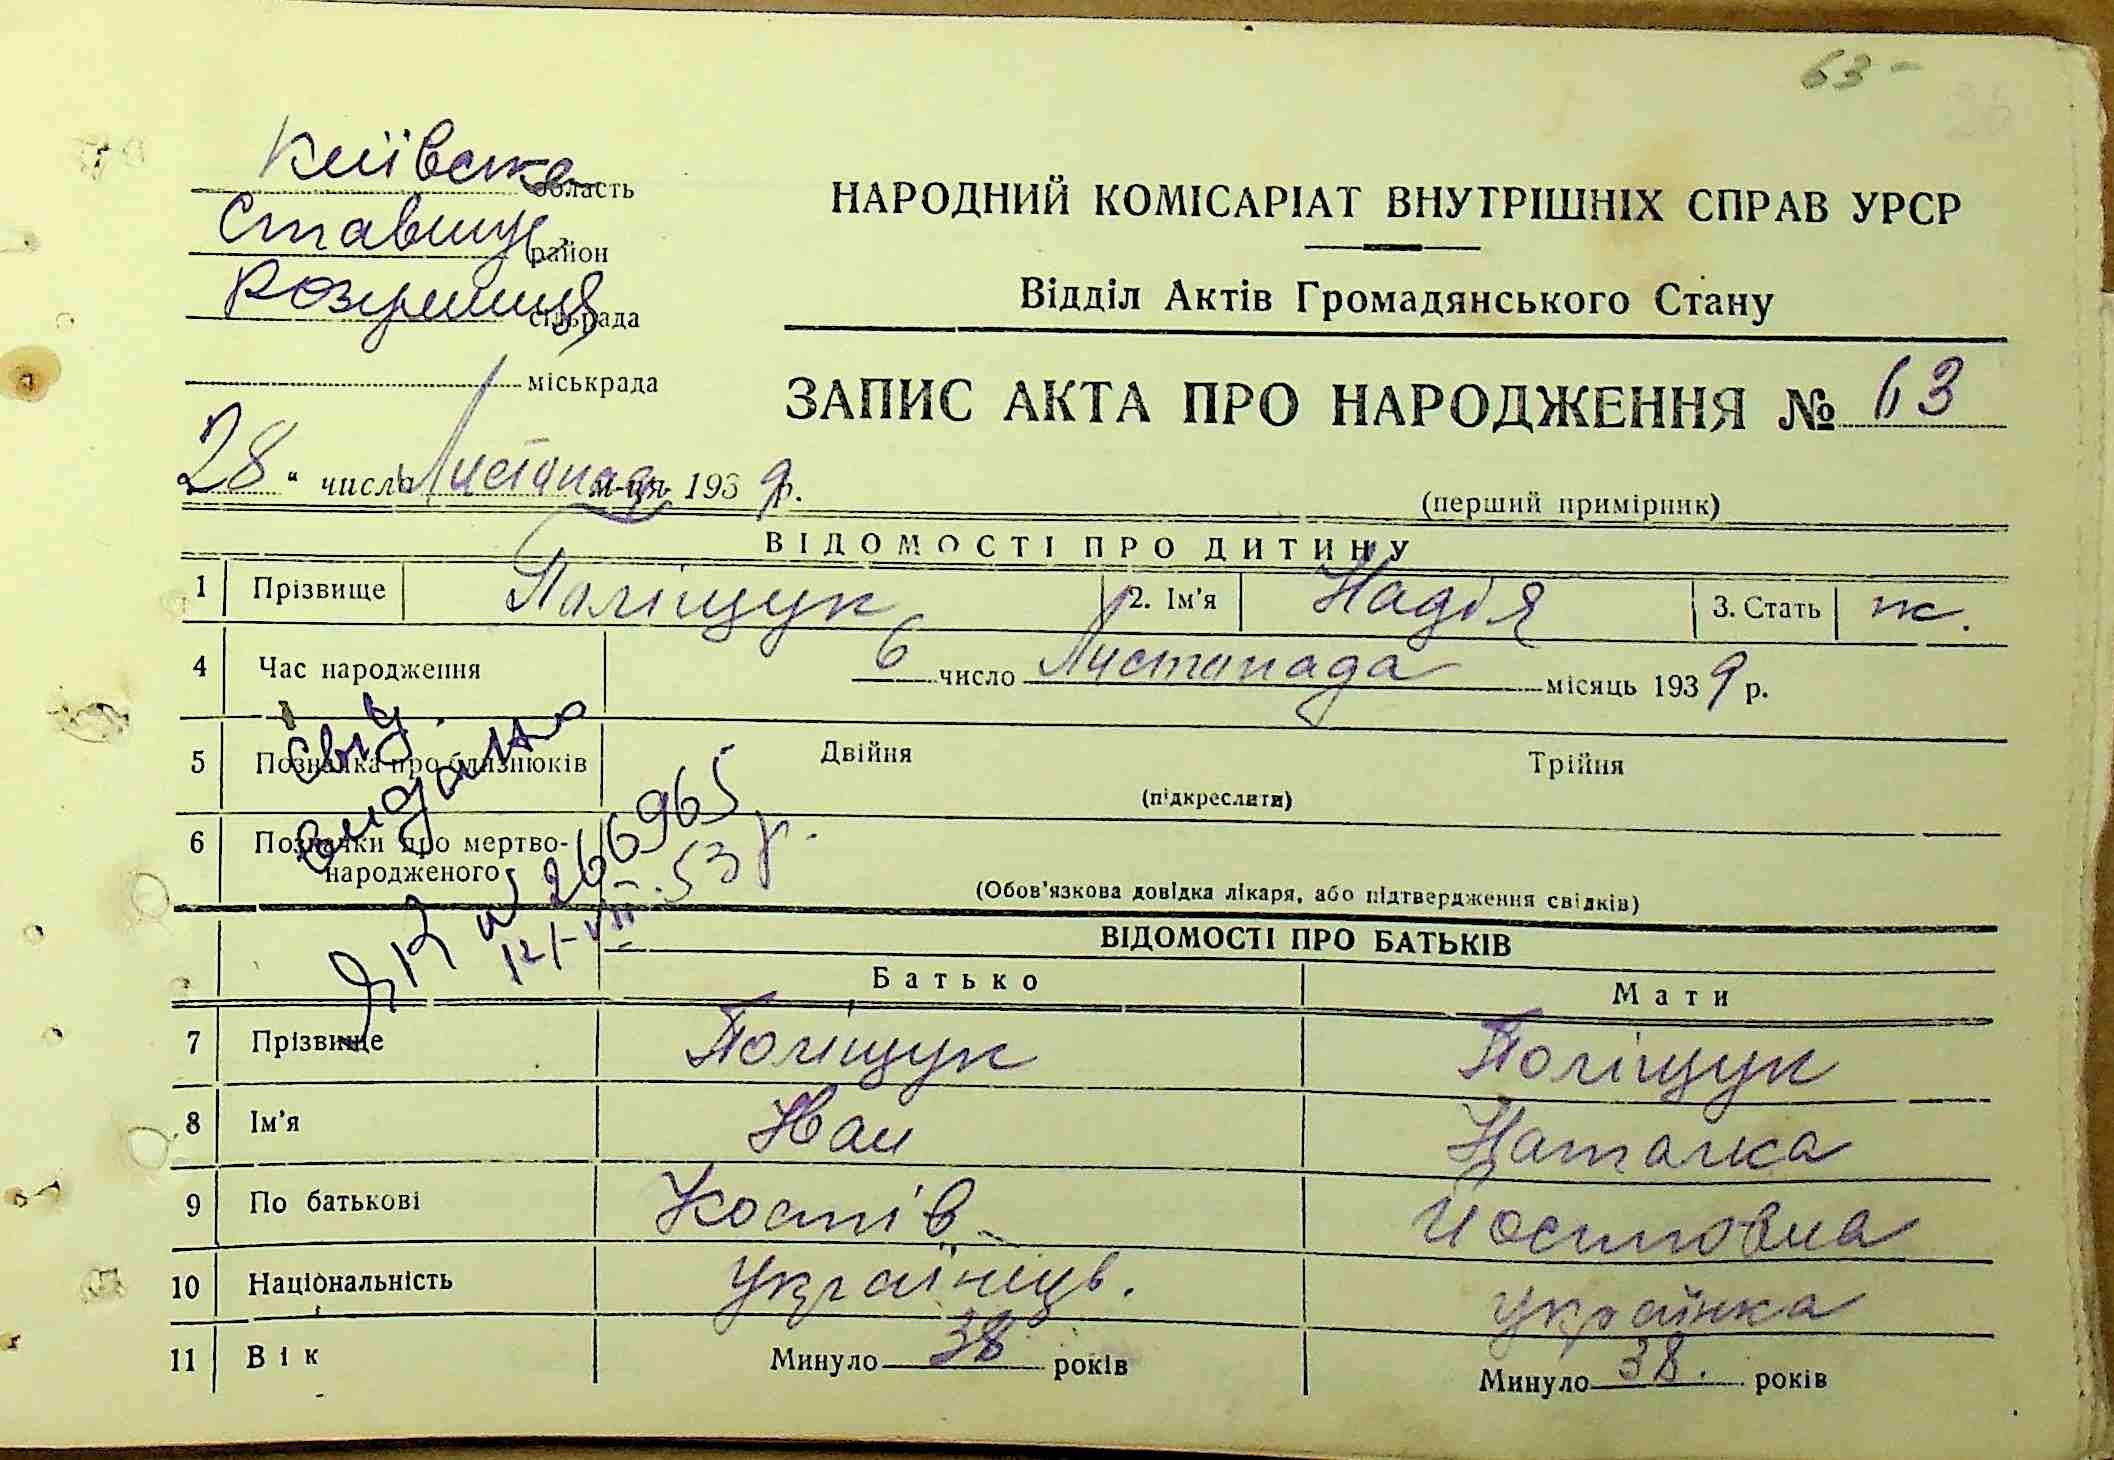 63 -
Київська область
Ставищ. район
сільрада
міськрада
НАРОДНИЙ КОМІСАРІАТ ВНУТРІШНІХ СПРАВ УРСР
Відділ Актів Громадянського Стану
ЗАПИС АКТА ПРО НАРОДЖЕННЯ № 63
28 " числа Листопад м-ця 1939 р.
(перший примірник)
ВІДОМОСТІ ПРО ДИТИНУ
1 Прізвище Поліщук 2. Ім'я Надія 3. Стать ж.
4 Час народження 6 число Листопада місяць 1939 р.
5 Позначка про близнюків Двійня Трійня
(підкреслити)
6 Позначки про мертво-
народженого
(Обов'язкова довідка лікаря, або підтвердження свідків)
Свід.
видано
ЯК № 266965
12/-VIII-53 р.
ВІДОМОСТІ ПРО БАТЬКІВ
Батько Мати
7 Прізвище Поліщук Поліщук
8 Ім'я Иван Наталка
9 По батькові Костів Йосиповна
10 Національність Українець. українка
11 Вік Минуло 38 років Минуло 38. років